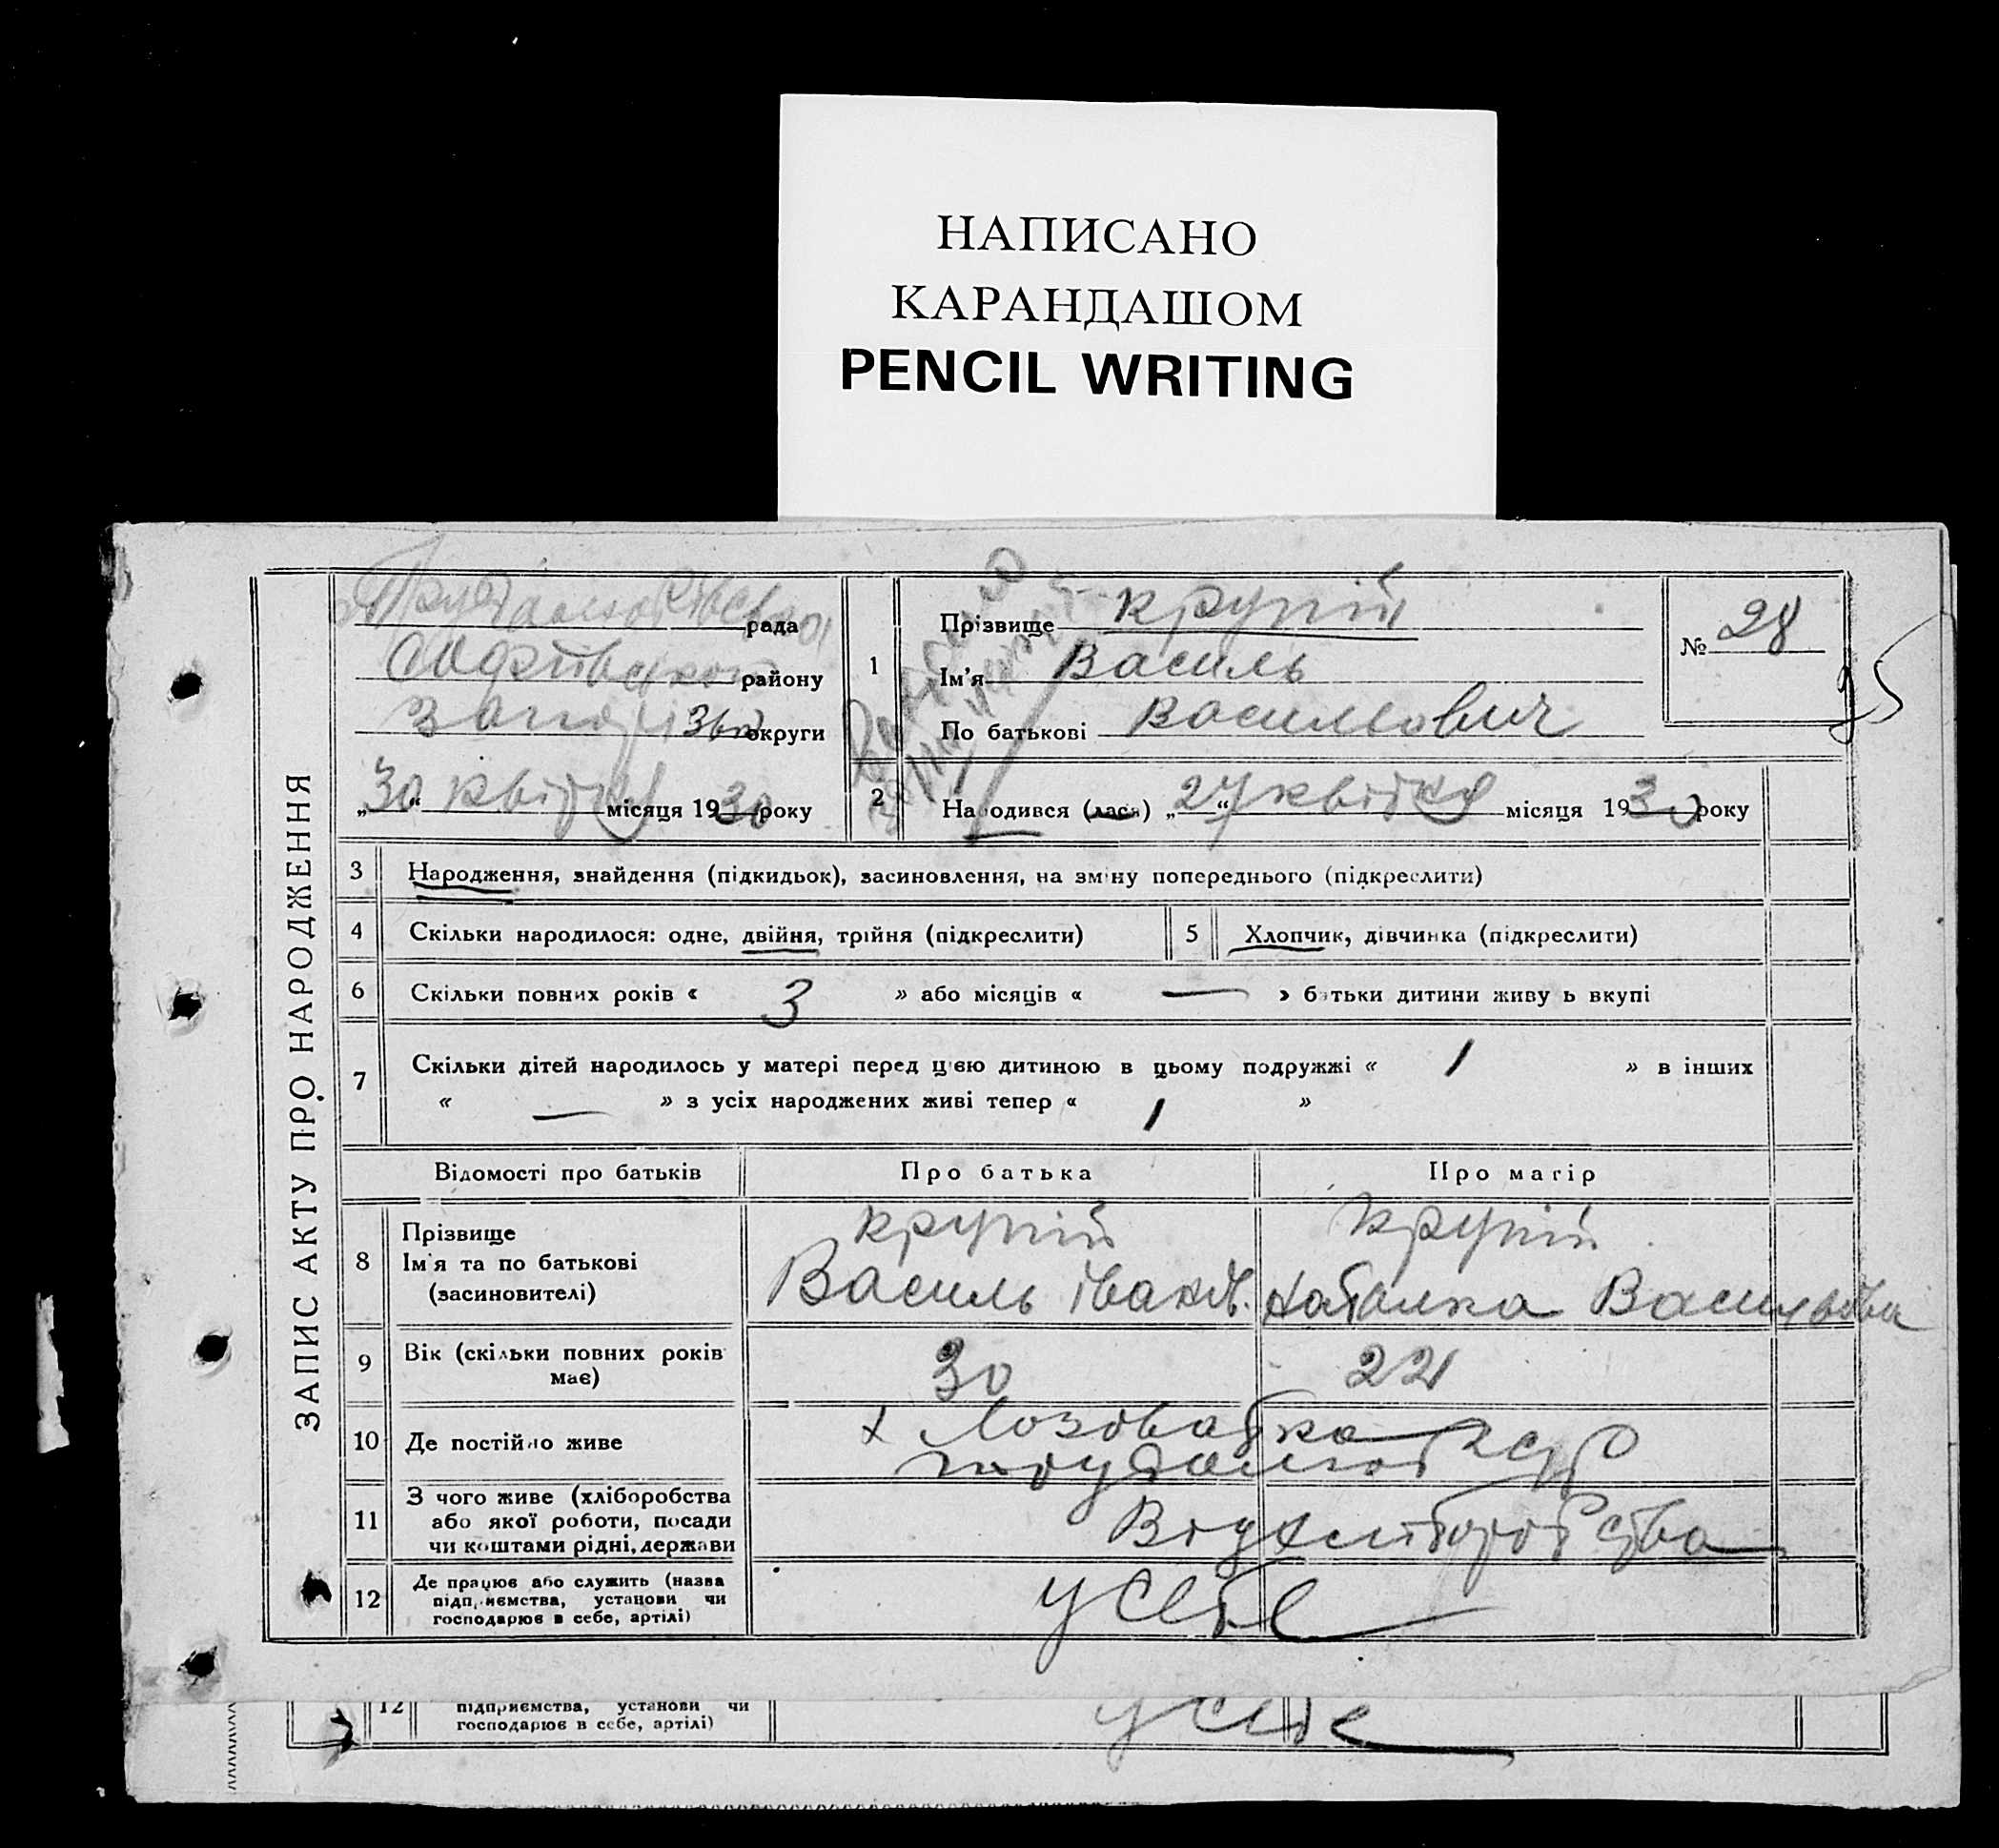 НАПИСАНО
КАРАНДАШОМ
PENCIL WRITING
ЗАПИС АКТУ ПРО НАРОДЖЕННЯ
рада
району
округи
„30“ квітня місяця 1930 року
1
Прізвище Крупій
Ім'я Василь
По батькові Васильович
№ 28
95
2
Народився (лася) „27“ квітня місяця 1930 року
3 Народження, знайдення (підкидьок), засиновлення, на зміну попереднього (підкреслити)
4 Скільки народилося: одне, двійня, трійня (підкреслити) 5 Хлопчик, дівчинка (підкреслити)
6 Скільки повних років « 3 » або місяців « — » батьки дитини живуть вкупі
7 Скільки дітей народилось у матері перед цією дитиною в цьому подружжі « 1 » в інших
« — » з усіх народжених живі тепер « 1 »
Відомості про батьків Про батька Про матір
8 Прізвище
Ім'я та по батькові
(засиновителі)
Крупій
Василь Іванов.
Крупій
Наталка Василівна
9 Вік (скільки повних років
має)
30
22
10 Де постійно живе
х Лозоватка
11 З чого живе (хліборобства
або якої роботи, посади
чи коштами рідні, держави
Від хліборобства
12 Де працює або служить (назва
підприємства, установи чи
господарює в себе, артілі)
у себе
12 підприємства, установи чи
господарює в себе, артілі)
у себе